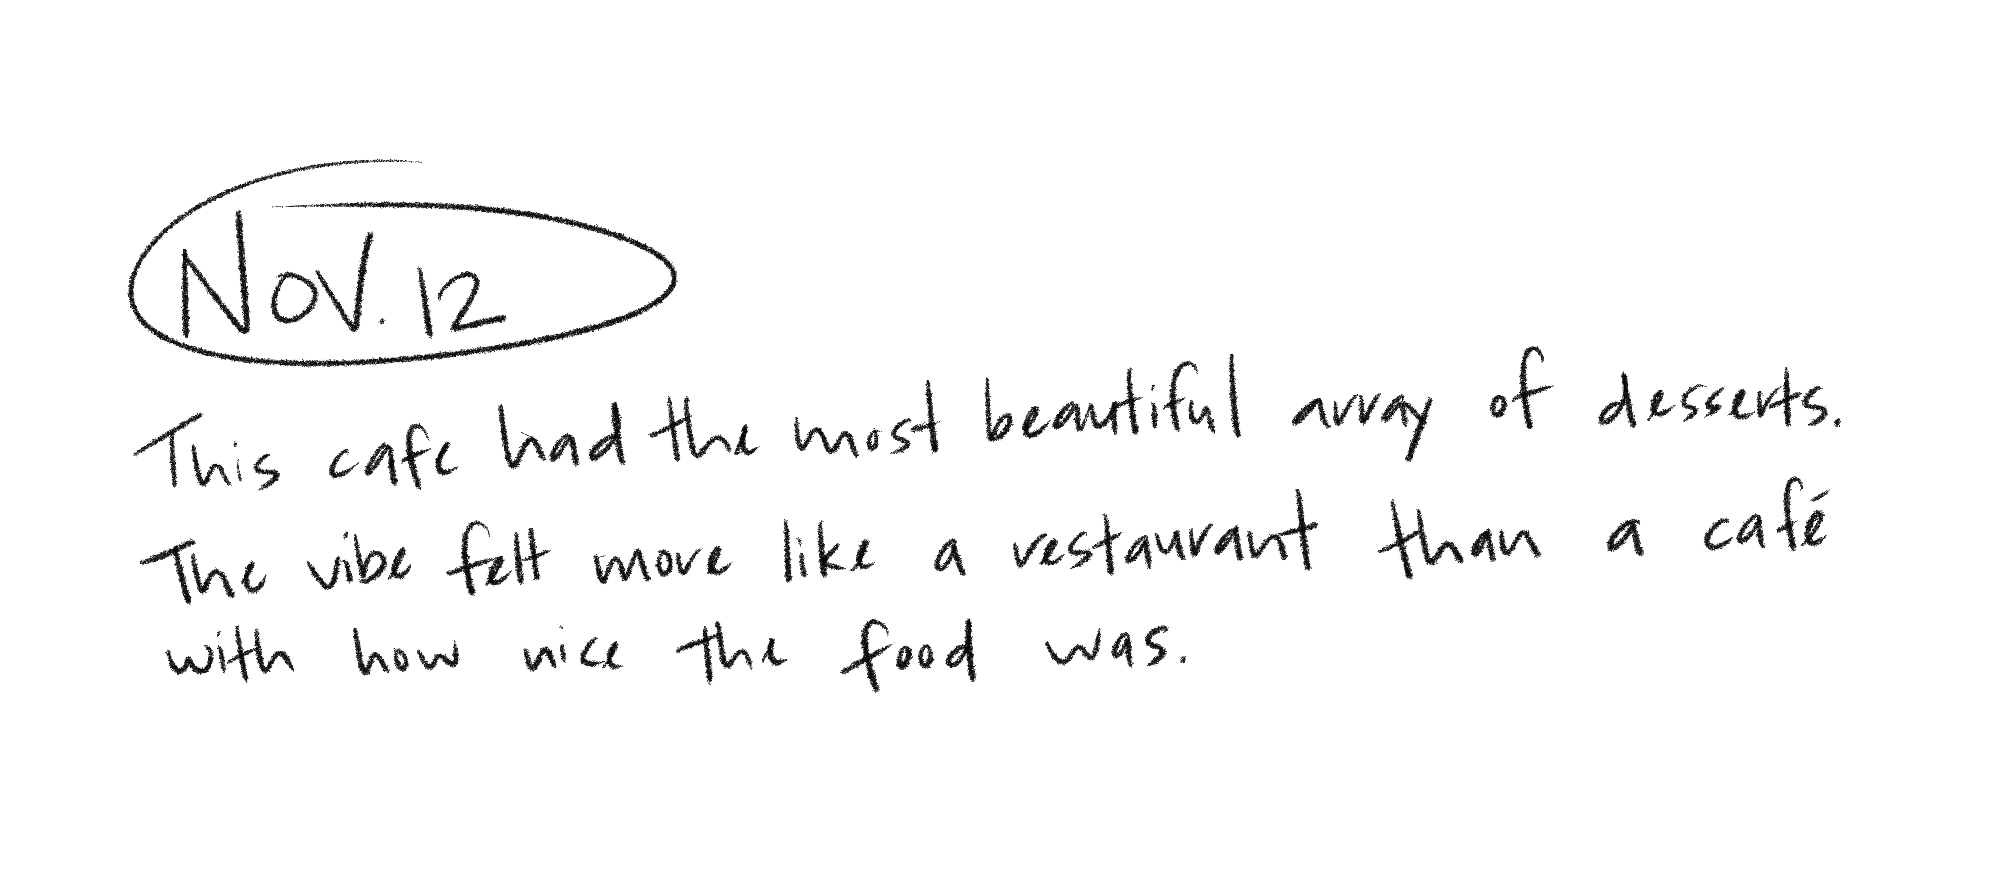 Nov. 12
This cafe had the most beautiful array of desserts.
The vibe felt more like a restaurant than a café
with how nice the food was.